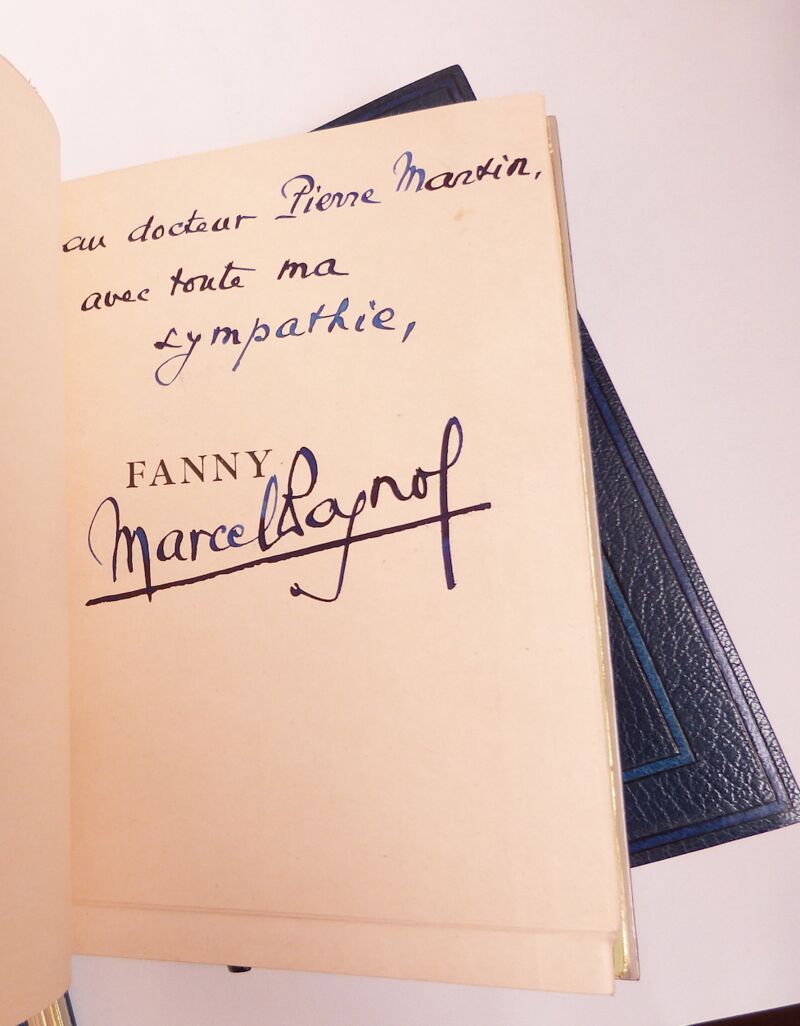 au docteur Pierre Martin,
avec toute ma
sympathie,
FANNY
Marcel Pagnol